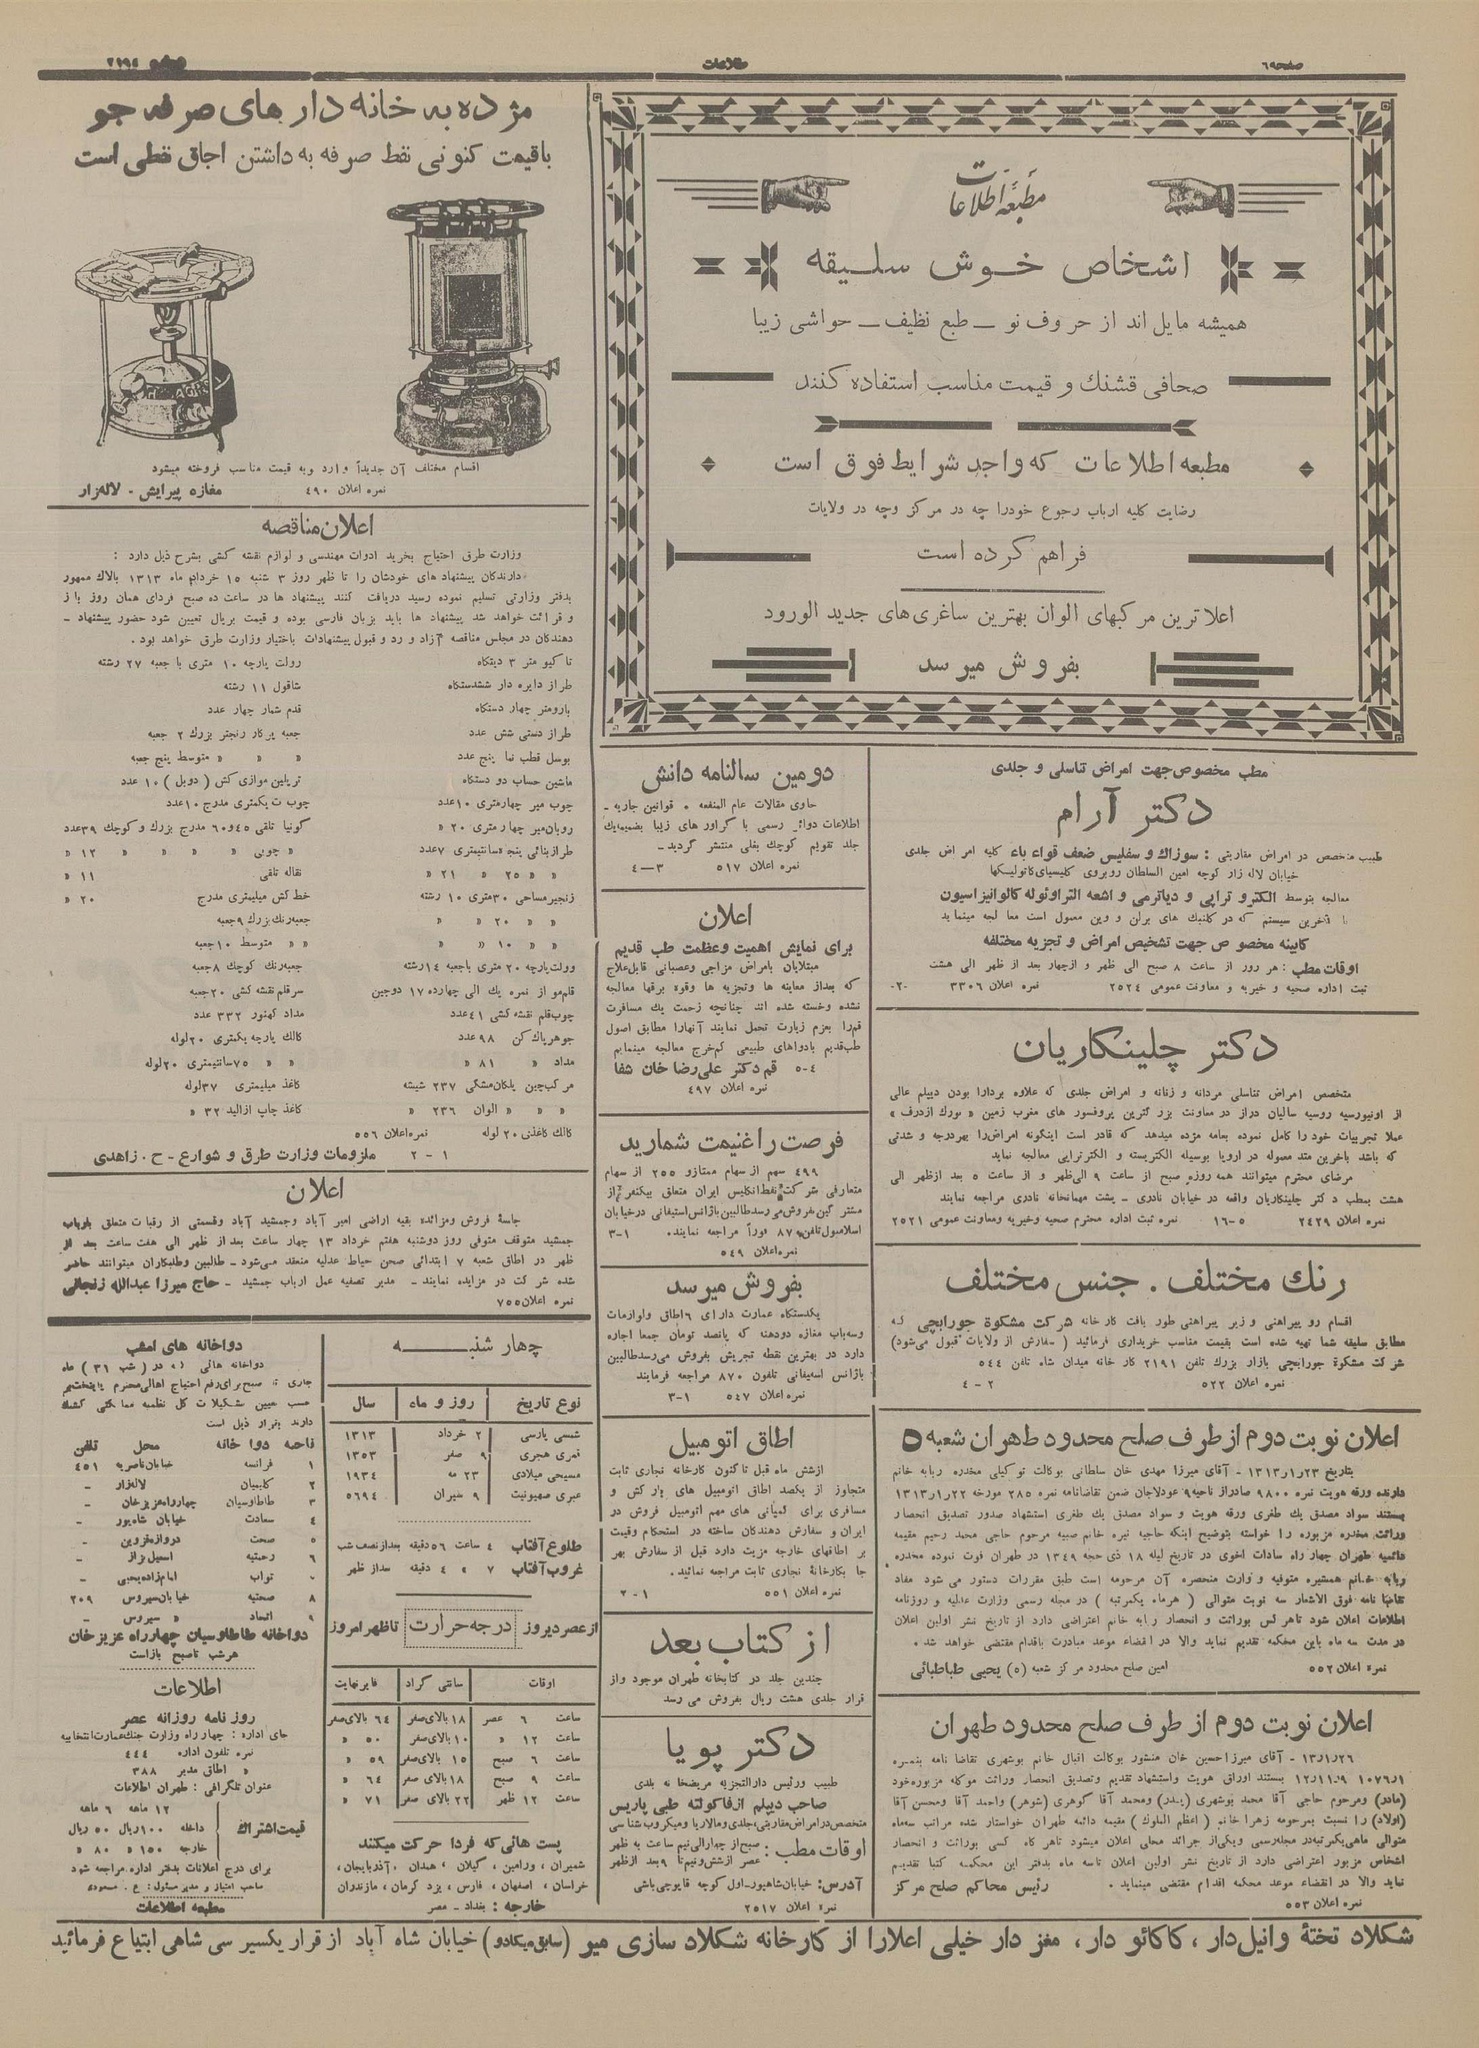 اطلاعات
مطبعه اطلاعات
اشخاص خوش سلیقه
همیشه مایل اند از حروف نو – طبع نظیف – حواشی زیبا
صحافی قشنك و قیمت مناسب استفاده کنند
مطبعه اطلاعات که واجد شرایط فوق است
رضایت کلیه ارباب رجوع خودرا چه در مرکز وچه در ولایات
فراهم کرده است
اعلاترین مرکبهای الوان بهترین ساغری‌های جدید الورود
بفروش میرسد
مطب مخصوص جهت امراض تناسلی و جلدی
دکتر آرام
طبیب متخصص در امراض مقاربتی : سوزاك و سفلیس ضعف قواء باء کلیه امراض جلدی
خیابان لاله زار کوچه امین السلطان روبروی کلیسیای کاتولیکها
معالجه بتوسط الکترو تراپی و دیاترمی و اشعه التراویوله کالوانیزاسیون
با آخرین سیستم که در کلنیك های برلن و وین معمول است معالجه مینماید
کابینه مخصوص جهت تشخیص امراض و تجزیه مختلفه
اوقات مطب : هر روز از ساعت ۸ صبح الی ظهر و ازچهار بعد از ظهر الی هشت
ثبت اداره صحیه و خیریه و معاونت عمومی ۲۵۲۴ نمره اعلان ۳۳۰۶
دکتر چلینکاریان
متخصص امراض تناسلی مردانه و زنانه و امراض جلدی که علاوه بردارا بودن دیپلم عالی
از اونیورسیه روسیه سالیان دراز در معاونت بزرگترین پروفسور های مغرب زمین
عملا تجربیات خود را کامل نموده بعامه مژده میدهد که قادر است اینگونه امراض‌را بهردرجه و شدتی
که باشد باخرین متد معموله در اروپا بوسیله الکتریسته و الکتراپی معالجه نماید
مرضای محترم میتوانند همه‌روزه صبح از ساعت ۹ الی‌ظهر و از ساعت ۵ بعد ازظهر الی
هشت بمطب دکتر چلینکاریان واقعه در خیابان نادری – پشت مهمانخانه نادری مراجعه نمایند
نمره اعلان ۲۴۲۹ ۵–۱۶ نمره ثبت اداره محترم صحیه وخیریه ومعاونت عمومی ۲۵۲۱
رنك مختلف . جنس مختلف
اقسام رو پیراهنی و زیر پیراهنی طور بافت کارخانه شرکت مشکوة جورابچی که
مطابق سلیقه شما تهیه شده است بقیمت مناسب خریداری فرمائید ( سفارش از ولایات قبول می‌شود)
شرکت مشکوة جورابچی بازار بزرك تلفن ۲۱۹۱ کارخانه میدان شاه تلفن ۵۴۴
نمره اعلان ۵۲۲ ۲–۴
اعلان نوبت دوم از طرف صلح محدود طهران شعبه ۵
بتاریخ ۱۳۱۳٫۱٫۲۳ – آقای میرزا مهدی خان سلطانی بوکالت توکیلی مخدره ربابه خانم
دارنده ورقه هویت نمره ۹۸۰۰ صادراز ناحیه۹ عودلاجان ضمن تقاضانامه نمره ۲۸۵ مورخه ۱۳۱۳٫۱٫۲۲
بمستند سواد مصدق یك طغری ورقه هویت و سواد مصدق یك طغری استشهاد صدور تصدیق انحصار
وراثت مخدره مزبوره را خواسته بتوضیح اینکه حاجیه نیره خانم صبیه مرحوم حاجی محمد رحیم مقیمه
دائمیه طهران چهار راه سادات اخوی در تاریخ لیله ۱۸ ذی حجه ۱۳۴۹ در طهران فوت نموده مخدره
ربابه خانم همشیره متوفیه و وارث منحصره آن مرحومه است طبق مقررات دستور می شود مفاد
تقاضا نامه فوق الاشعار سه نوبت متوالی ( هرماه یکمرتبه ) در مجله رسمی وزارت عدلیه و روزنامه
اطلاعات اعلان شود تاهر کس بوراثت و انحصار ربابه خانم اعتراضی دارد از تاریخ نشر اولین اعلان
در مدت سه ماه باین محکمه تقدیم نماید والا در انقضاء موعد مبادرت باقدام مقتضی خواهد شد .
نمره اعلان ۵۵۲ امین صلح محدود مرکز شعبه (۵) یحیی طباطبائی
اعلان نوبت دوم از طرف صلح محدود طهران
۱۳٫۱٫۲۶ – آقای میرزاحسین خان منشور بوکالت اقبال خانم بوشهری تقاضا نامه بنمره
بمستند اوراق هویت واستشهاد تقدیم وتصدیق انحصار وراثت موکله مزبوره‌خود
(مادر) ومرحوم حاجی آقا محمد بوشهری (پدر) ومحمد آقا گوهری (شوهر) واحمد آقا ومحسن آقا
(اولاد) را نسبت بمرحومه زهرا خانم ( اعظم الملوك ) مقیمه دائمه طهران خواستار شده مراتب سه‌ماه
متوالی ماهی‌یکمرتبه‌در مجله‌رسمی ویکی‌از جرائد محلی اعلان میشود تاهر کاه کسی بوراثت و انحصار
اشخاص مزبور اعتراضی دارد از تاریخ نشر اولین اعلان تاسه ماه بدفتر این محکمه کتبا تقدیم
نماید والا در انقضاء موعد محکمه اقدام مقتضی مینماید . رئیس محاکم صلح مرکز
نمره اعلان ۵۵۳
دومین سالنامه دانش
حاوی مقالات عام المنفعه . قوانین جاریه –
اطلاعات دوائر رسمی با گراور های زیبا بضمیمه‌یك
جلد تقویم کوچك بغلی منتشر گردید –
نمره اعلان ۵۱۷ ۳—۴
اعلان
برای نمایش اهمیت وعظمت طب قدیم
مبتلایان بامراض مزاجی وعصبانی قابل‌علاج
که بعداز معاینه ها وتجزیه ها وقوه برقها معالجه
نشده وخسته شده اند چنانچه زحمت یك مسافرت
قم‌را بعزم زیارت تحمل نمایند آنهارا مطابق اصول
طب‌قدیم بادواهای طبیعی کم‌خرج معالجه مینمایم
۴–۵ قم دکتر علی‌رضا خان شفا
نمره اعلان ۴۹۷
فرصت را غنیمت شمارید
۴۹۹ سهم از سهام ممتازو ۲۵۵ از سهام
متعارفی شرکت نفط‌انکلیس ایران متعلق بیکنفر از
بفروش‌می‌رسدطالبین باژانس‌استیفانی درخیابان
اسلامبول‌تلفن ۸۷۰ فوراً مراجعه نمایند. ۱–۳
نمره‌اعلان ۵۴۹
بفروش میرسد
یکدستگاه عمارت دارای ۶اطاق ولوازمات
وسه‌باب مغازه دودهنه که پانصد تومان جمعا اجاره
دارد در بهترین نقطه تجریش بفروش می‌رسدطالبین
باژانس استیفانی تلفون ۸۷۰ مراجعه فرمایند
نمره اعلان ۵۴۷ ۱–۳
اطاق اتومبیل
ازشش ماه قبل تاکنون کارخانه نجاری ثابت
متجاوز از یکصد اطاق اتومبیل های بارکش و
مسافری برای کمپانی های مهم اتومبیل فروش در
ایران و سفارش دهندکان ساخته در استحکام وقیمت
بر اطاقهای خارجه مزیت دارد قبل از سفارش بهر
جا بکارخانهٔ نجاری ثابت مراجعه نمائید.
نمره اعلان ۵۵۱ ۱–۲
از کتاب بعد
چندین جلد در کتابخانه طهران موجود واز
قرار جلدی هشت ریال بفروش می رسد
دکتر پویا
طبیب ورئیس دارالتجزیه مریضخانه بلدی
صاحب دیپلم از فاکولته طبی پاریس
متخصص‌درامراض‌مقاربتی،جلدی‌ومالاریا ومیکروب‌شناسی
اوقات مطب : صبح‌از چهارالی‌نیم ساعت به ظهر
عصر ازشش‌ونیم‌تا ۹بعد ازظهر
آدرس: خیابان‌شاهپور–اول‌کوچه قاپوچی‌باشی
نمره اعلان ۲۵۱۷
مژده به خانه دار های صرفه جو
باقیمت کنونی نفط صرفه به داشتن اجاق نفطی است
اقسام مختلف آن جدیداً وارد وبه قیمت مناسب فروخته میشود
نمره اعلان ۴۹۰ مغازه پیرایش – لاله‌زار
اعلان مناقصه
وزارت طرق احتیاج بخرید ادوات مهندسی و لوازم نقشه کشی بشرح ذیل دارد :
دارندکان پیشنهاد های خودشان را تا ظهر روز ۳ شنبه ۱۵ خرداد ماه ۱۳۱۳ بالاك ممهور
بدفتر وزارتی تسلیم نموده رسید دریافت کنند پیشنهاد ها در ساعت ده صبح فردای همان روز باز
و قرائت خواهد شد پیشنهاد ها باید بزبان فارسی بوده و قیمت بریال تعیین شود حضور پیشنهاد –
دهندکان در مجلس مناقصه آزاد و رد و قبول پیشنهادات باختیار وزارت طرق خواهد بود .
تاکیو متر ۳ دستکاه رولت پارچه ۱۰ متری با جعبه ۲۷ رشته
طراز دایره دار ششدستکاه شاقول ۱۱ رشته
بارومتر چهار دستکاه قدم شمار چهار عدد
طراز دستی شش عدد جعبه پرکار رنجتر بزرك ۲ جعبه
بوسل قطب نما پنج عدد « « « متوسط پنج جعبه
ماشین حساب دو دستکاه ترپلین موازی کش ( دوبل ) ۱۰ عدد
چوب میر چهارمتری ۱۰عدد چوب ت یکمتری مدرج ۱۰عدد
روبان‌میر چهارمتری ۲۰ « گونیا تلقی ۴۵و۶۰ مدرج بزرك و کوچك ۳۹عدد
طرازبنائی پنجاه‌سانتیمتری ۷عدد « چوبی « « « « ۱۲ «
« « ۲۵ « ۲۱ « نقاله تلقی ۱۱ «
زنجیرمساحی ۳۰متری ۱۰ رشته خط‌کش میلیمتری مدرج ۲۰ «
« « ۲۰ « « جعبه‌رنك‌بزرك ۹جعبه
« « ۱۰ « « « « متوسط ۱۰جعبه
رولت‌پارچه ۲۰ متری باجعبه ۱۴رشته جعبه‌رنك کوچك ۸جعبه
قلم‌مو از نمره یك الی چهارده ۱۷ دوجین سرقلم نقشه کشی ۲۰جعبه
چوب‌قلم نقشه کشی ۴۱عدد مداد کهنور ۳۳۲ عدد
جوهرپاك کن ۹۸عدد کالك پارچه یکمتری ۲۰لوله
مداد « ۸۱ « « « ۷۵سانتیمتری ۲۰لوله
مرکب‌چین پلکان‌مشکی ۲۳۷ شیشه کاغذ میلیمتری ۳۷لوله
« « « الوان ۲۳۶ « کاغذ چاپ ازالید ۳۲ «
کالك کاغذی ۲۰ لوله نمره‌اعلان ۵۵۶
۱–۲ ملزومات وزارت طرق و شوارع – ح . زاهدی
اعلان
جلسهٔ فروش ومزائده بقیه اراضی امیر آباد وجمشید آباد وقسمتی از رقبات متعلق بارباب
جمشید متوقف متوفی روز دوشنبه هفتم خرداد ۱۳ چهار ساعت بعد از ظهر الی هفت ساعت بعد از
ظهر در اطاق شعبه ۷ ابتدائی صحن حیاط عدلیه منعقد می‌شود – طالبین وطلبکاران میتوانند حاضر
شده شرکت در مزایده نمایند – مدیر تصفیه عمل ارباب جمشید – حاج میرزا عبدالله زنجانی
نمره اعلان ۷۵۵
چهار شنبه
نوع تاریخ روز و ماه سال
شمسی پارسی ۲ خرداد ۱۳۱۳
قمری هجری ۹ صفر ۱۳۵۳
مسیحی میلادی ۲۳ مه ۱۹۳۴
عبری صهیونیت ۹ سیوان ۵۶۹۴
طلوع آفتاب ۴ ساعت ۵۶ دقیقه بعدازنصف شب
غروب آفتاب ۷ « ۴ دقیقه بعداز ظهر
ازعصردیروز درجه حرارت تاظهر امروز
اوقات سانتی گراد فارنهایت
ساعت ۶ عصر ۱۸ بالای‌صفر ۶۴ بالای‌صفر
ساعت ۱۲ « ۱۰ بالای‌صفر ۵۰ «
ساعت ۶ صبح ۱۵ بالای‌صفر ۵۹ «
ساعت ۹ صبح ۱۸ بالای صفر ۶۴ «
ساعت ۱۲ ظهر ۲۲ بالای صفر ۷۱ «
پست هائی که فردا حرکت میکنند
شمیران ، ورامین ، گیلان ، همدان ، آذربایجان ،
خراسان ، اصفهان ، فارس ، یزد کرمان ، مازندران
خارجه : بغداد – مصر
دواخانه های امشب
دواخانه هائی که در ( شب ۳۱ ) ماه
جاری تا صبح برای‌رفع احتیاج اهالی‌محترم پایتخت‌بر
دارند بقرار ذیل است
ناحیه دواخانه محل تلفن
۱ فرانسه خیابان‌ناصریه ۴۵۱
۲ کلیمیان لاله‌زار –
۳ طاطاوسیان چهارراه‌عزیزخان –
۴ سعادت خیابان شاه‌پور –
۵ صحت دروازه‌قزوین –
۶ رحمتیه اسمعیل بزاز –
تواب امام‌زاده‌یحیی –
۸ صحتیه خیابان‌سیروس ۲۰۹
۹ اتحاد « سیروس –
دواخانه طاطاوسیان چهارراه عزیزخان
هرشب تاصبح بازاست
اطلاعات
روزنامه روزانه عصر
جای اداره : چهار راه وزارت جنك‌عمارت‌انتخابیه
نمره تلفون اداره ۴۴۴
« اطاق مدیر ۳۸۸
عنوان تلگرافی : طهران اطلاعات
۱۲ ماهه ۶ ماهه
قیمت‌اشتراك داخله ۱۰۰ریال ۵۰ ریال
خارجه ۱۵۰ « ۸۰ «
برای درج اعلانات بدفتر اداره مراجعه شود
صاحب امتیاز و مدیر مسئول : ع . مسعودی
مطبعه اطلاعات
شکلاد تختهٔ وانیل‌دار ، کاکائو دار ، مغز دار خیلی اعلارا از کارخانه شکلاد سازی میو (سابق‌میکادو) خیابان شاه آباد از قرار یکسیر سی شاهی ابتیاع فرمائید